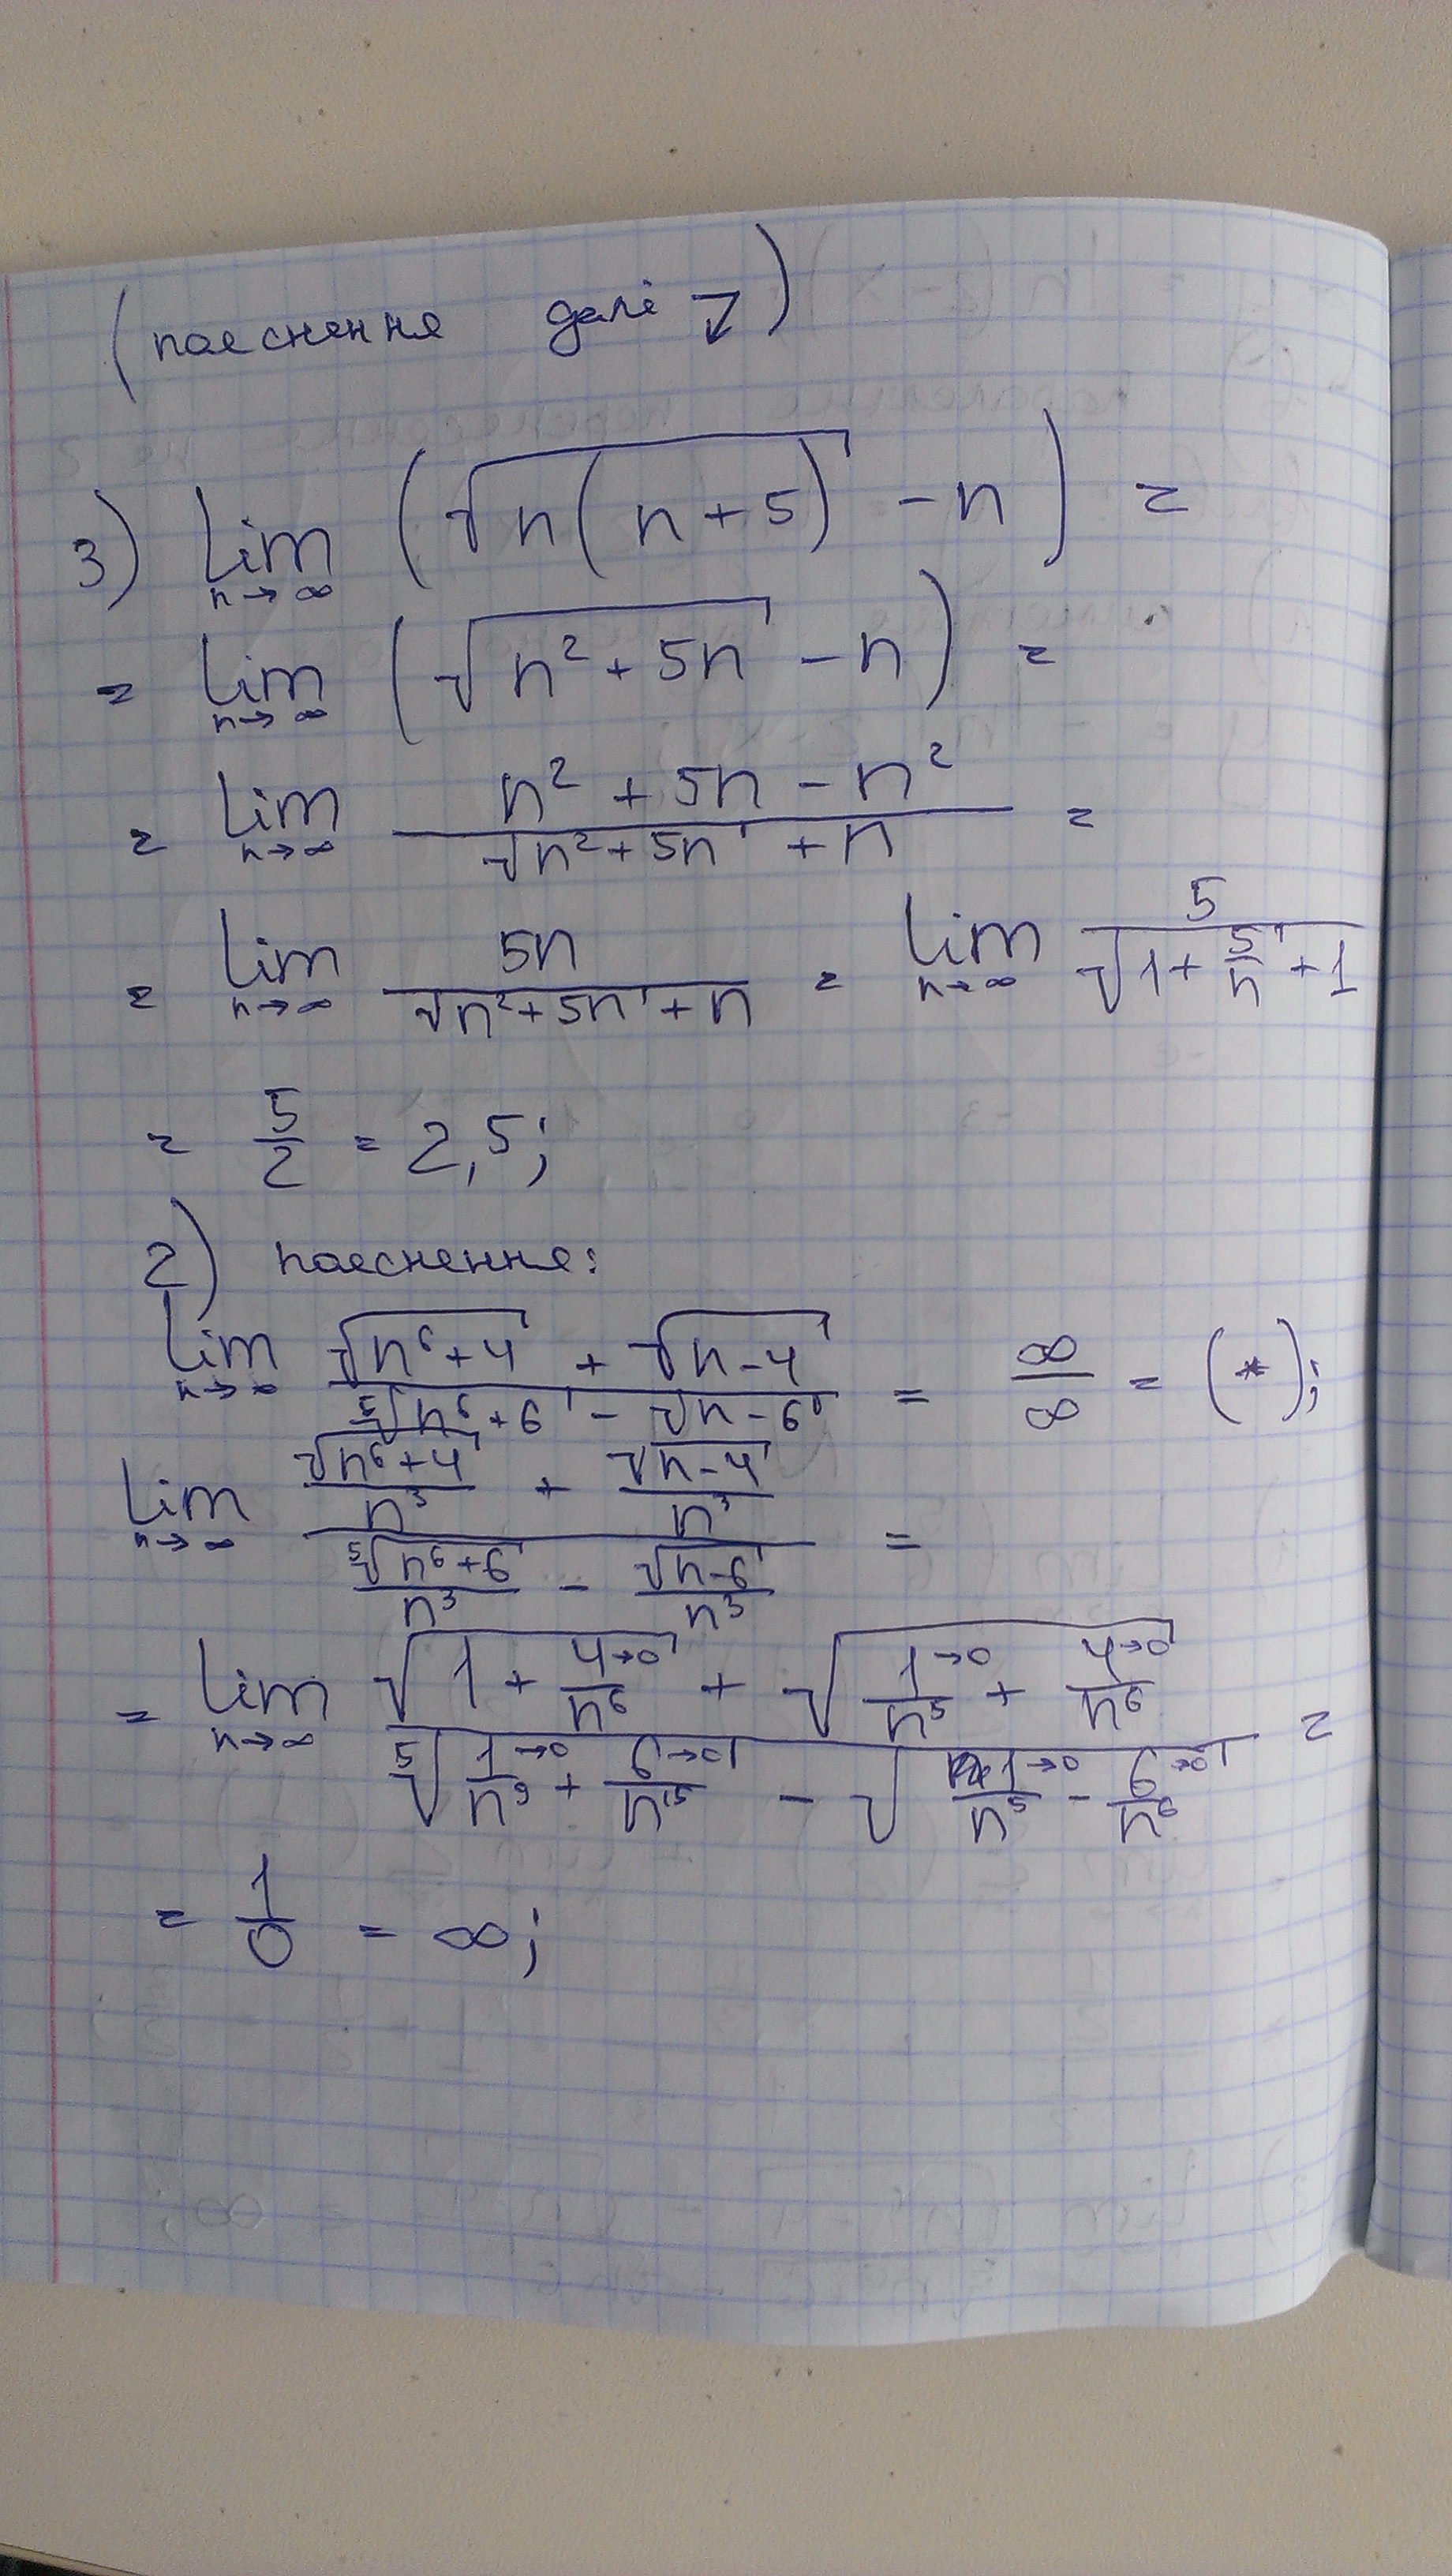 (пояснення далі ↓)
3) lim n→∞ (√(n(n+5)) - n) =
= lim n→∞ (√(n²+5n) - n) =
= lim n→∞ (n²+5n-n²)/(√(n²+5n)+n) =
= lim n→∞ 5n/(√(n²+5n)+n) = lim n→∞ 5/(√(1+5/n)+1)
= 5/2 = 2,5;
2) пояснення:
lim n→∞ (√(n⁶+4) + √(n-4))/(⁵√(n⁶+6) - √(n-6)) = ∞/∞ = (*);
lim n→∞ (√(n⁶+4)/n³ + √(n-4)/n³)/(⁵√(n⁶+6)/n³ - √(n-6)/n³) =
= lim n→∞ (√(1+4→0/n⁶) + √(1→0/n⁵ + 4→0/n⁶))/(⁵√(1→0/n⁹ + 6→0/n¹⁵) - √(1→0/n⁵ - 6→0/n⁶)) =
= 1/0 = ∞;